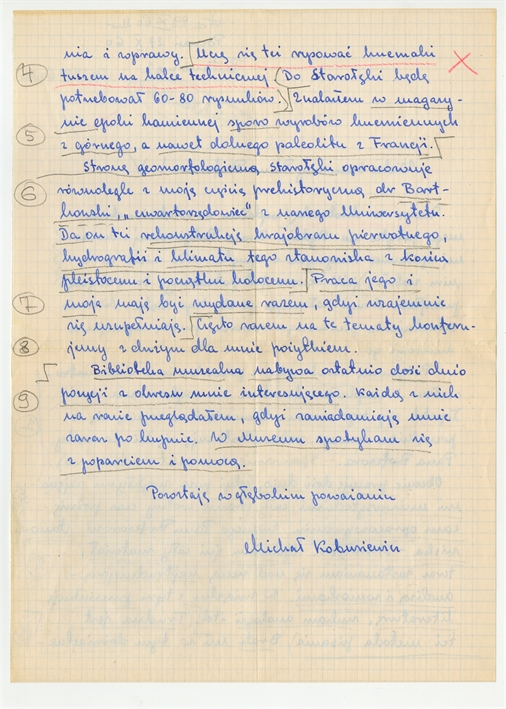 nia i wprawy. Uczę się też rysować krzemaki
④ tuszem na kalce technicznej. Do Starołęki będę
potrzebował 60-80 rysunków. Znalazłem w magazy-
nie epoki kamiennej sporo wyrobów krzemiennych
⑤ z górnego, a nawet dolnego paleolitu z Francji.
Stroną geomorfologiczną Starołęki opracowuje
⑥ równolegle z moją częścią prehistoryczną dr Bart-
kowski, "czwartorzędowiec" z naszego Uniwersytetu.
Da on też rekonstrukcję krajobrazu pierwotnego,
hydrografii i klimatu tego stanowiska z końca
pleistocenu i początku holocenu. Praca jego i
⑦ moja mają być wydane razem, gdyż wzajemnie
się uzupełniają. Często razem na te tematy konferu-
⑧ jemy z dużym dla mnie pożytkiem.
Biblioteka muzealna nabywa ostatnio dość dużo
⑨ pozycji z okresu mnie interesującego. Każdą z nich
na razie przeglądałem, gdyż zawiadamiają mnie
zaraz po kupnie. W Muzeum spotykam się
z poparciem i pomocą.
Pozostaję w głębokim poważaniu
Michał Kobusiewicz